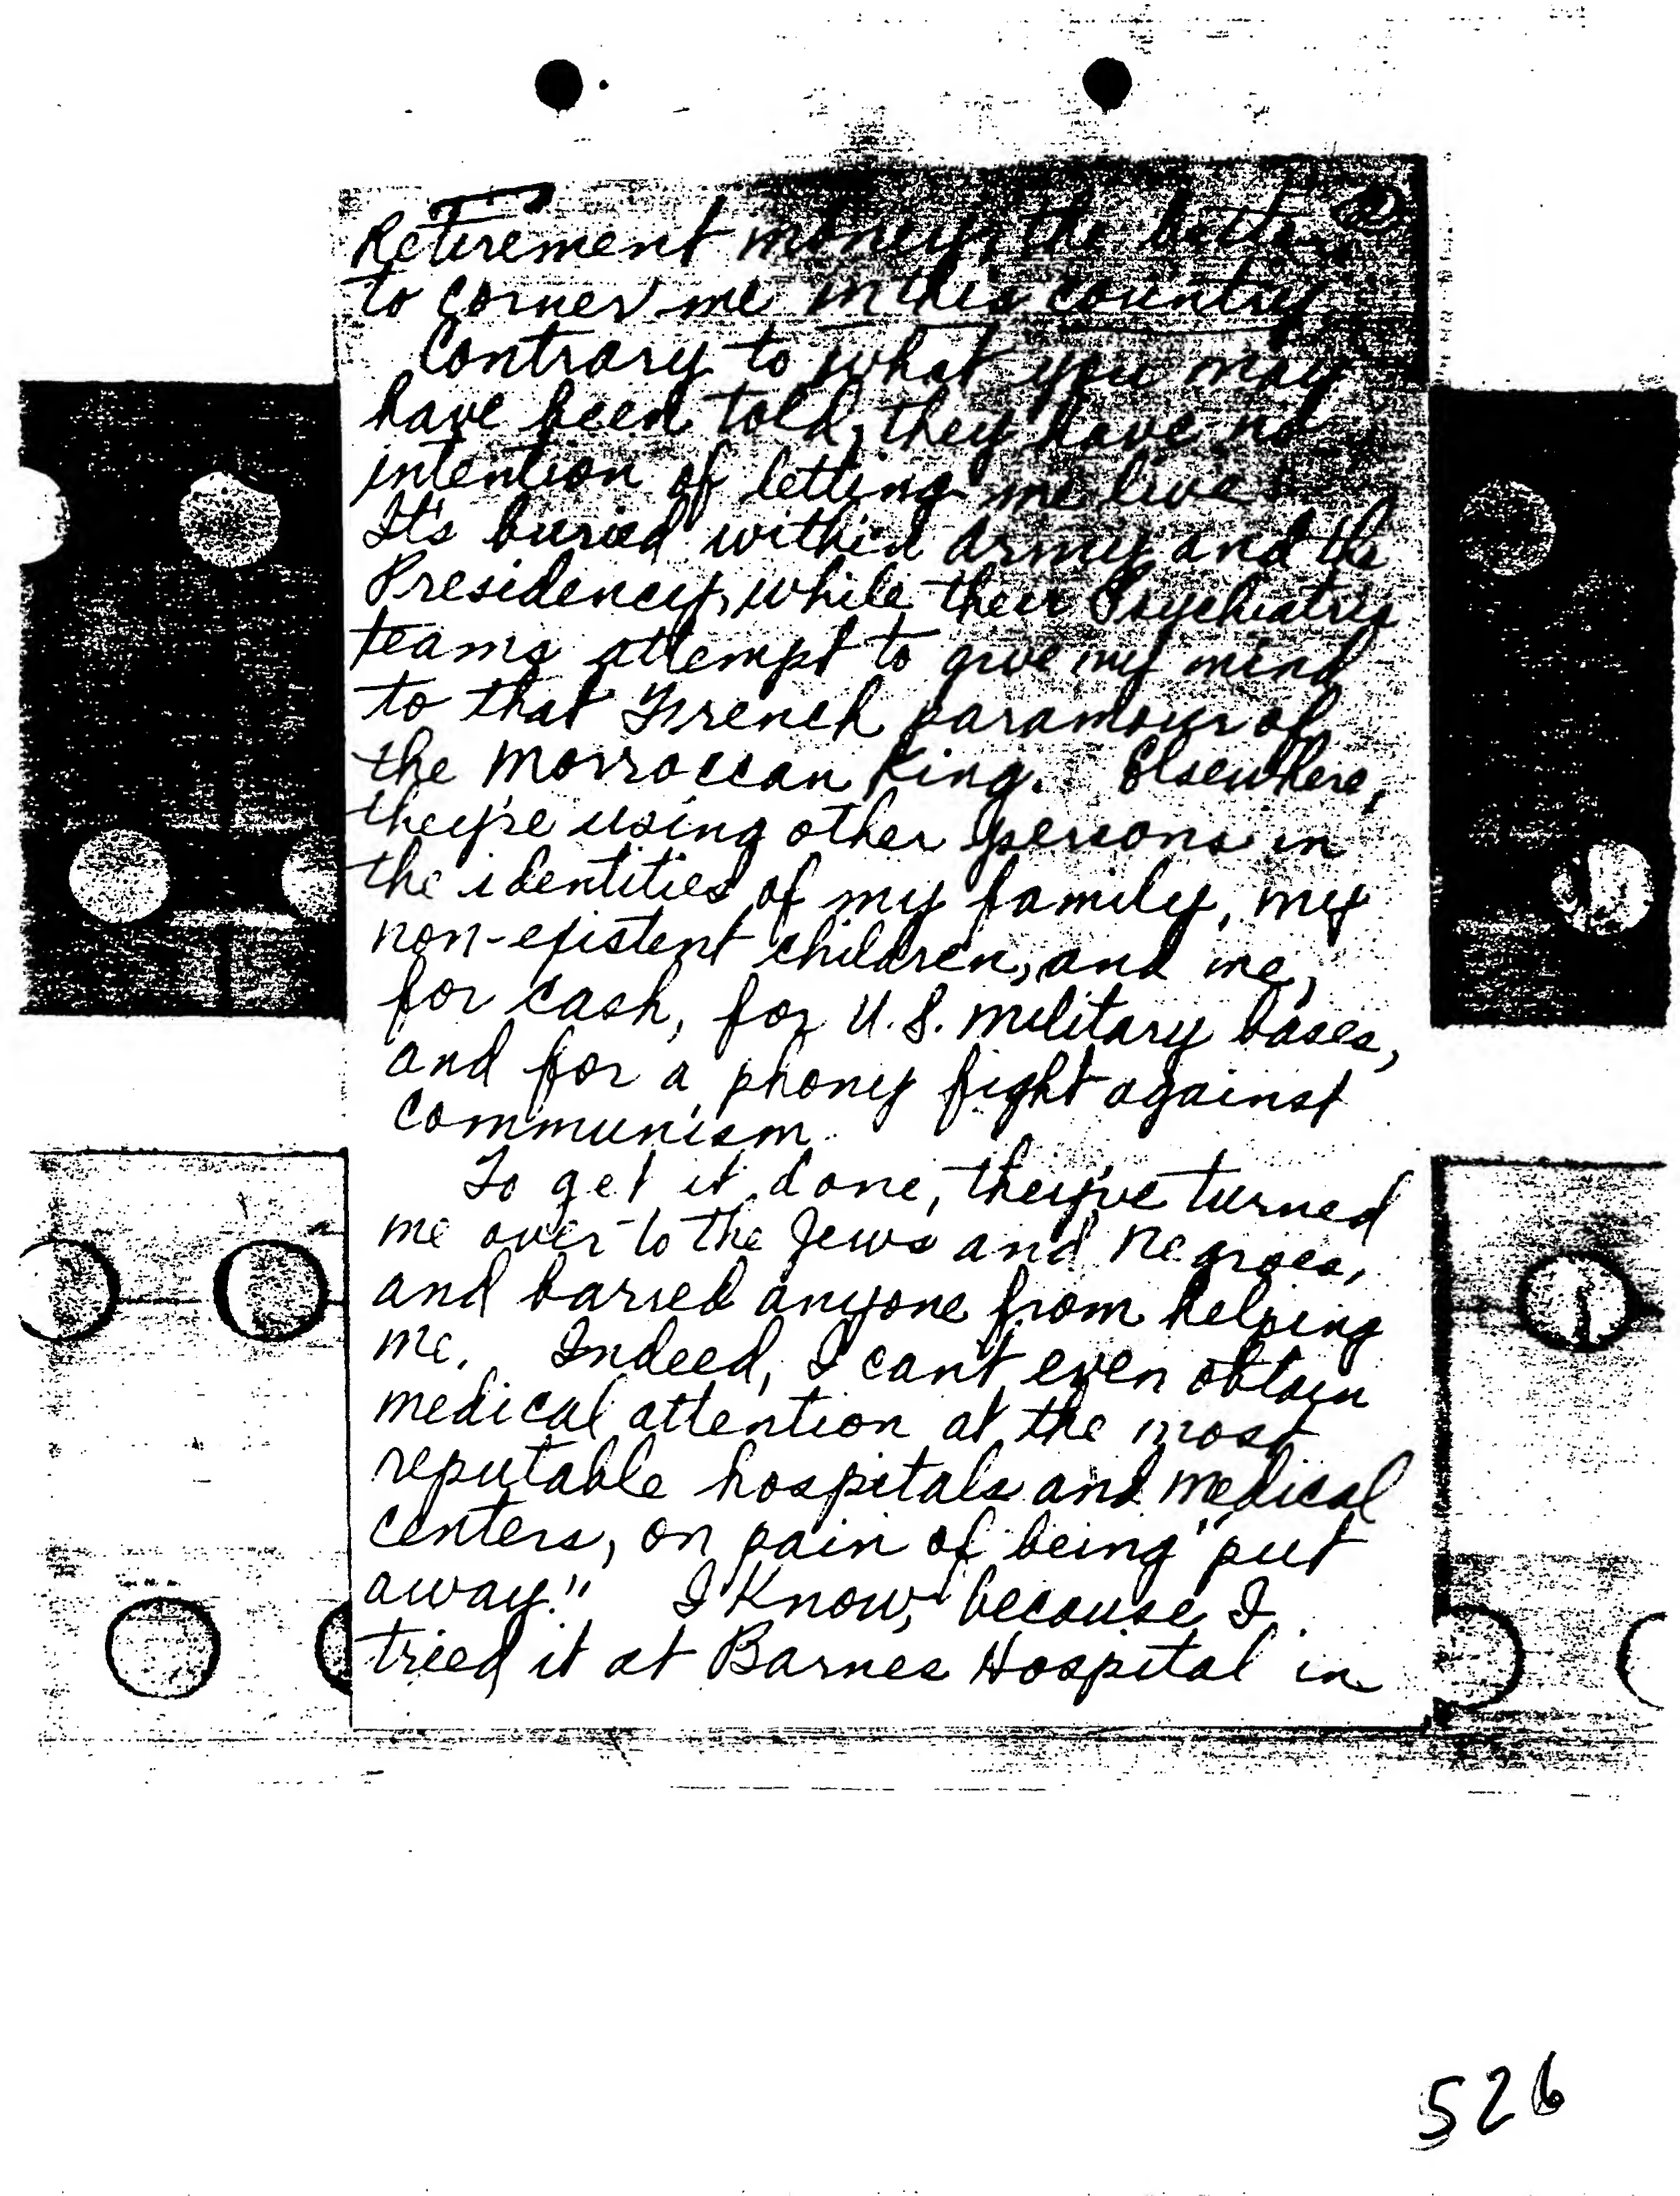 ②
Retirement money, the better
to corner me in this country.
Contrary to what you may
have been told, they have no
intention of letting me live
It's buried within Army and the
Presidency, while their Psychiatric
teams attempt to give my mind
to that French paramour of
the Morroccan King. Elsewhere,
they're using other persons in
the identities of my family, my
non-existent children, and me,
for cash, for U.S. military bases,
and for a phony fight against
communism.
To get it done, they've turned
me over to the Jews and Negroes,
and barred anyone from helping
me. Indeed, I can't even obtain
medical attention at the most
reputable hospitals and medical
centers, on pain of being "put
away." I know, because I
tried it at Barnes Hospital in
526